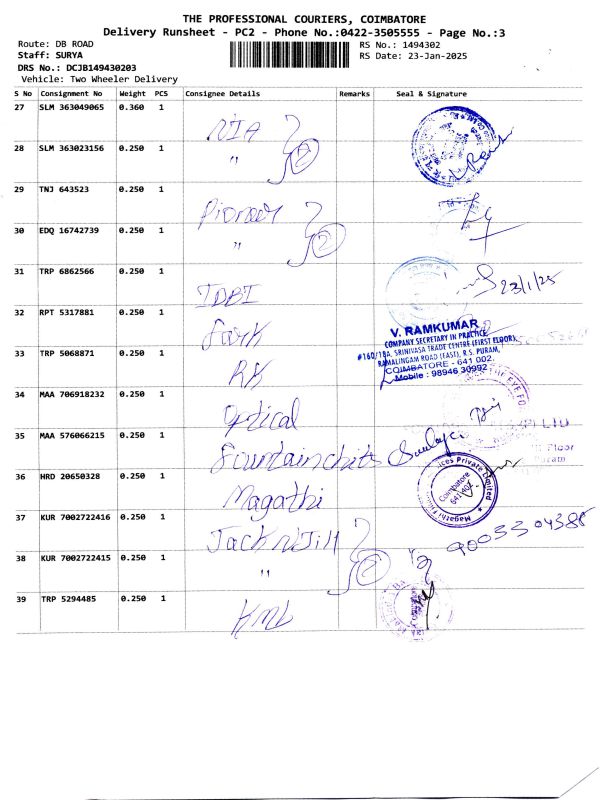 THE PROFESSIONAL COURIERS, COIMBATORE
Delivery Runsheet - PC2 - Phone No.:0422-3505555 - Page No.:3
Route: DB ROAD
RS No.: 1494302
Staff: SURYA
RS Date: 23-Jan-2025
DRS No.: DCJB149430203
Vehicle: Two Wheeler Delivery
S No Consignment No Weight PCS Consignee Details Remarks Seal & Signature
27 SLM 363049065 0.360 1 NIA
28 SLM 363023156 0.250 1 " 2
29 TNJ 643523 0.250 1 Pioneer
30 EDQ 16742739 0.250 1 " 2
31 TRP 6862566 0.250 1 IDBI 23/1/25
32 RPT 5317881 0.250 1
V. RAMKUMAR
COMPANY SECRETARY IN PRACTICE
#160/18A, SRINIVASA TRADE CENTRE (FIRST FLOOR),
RAMALINGAM ROAD (EAST), R.S. PURAM,
COIMBATORE - 641 002.
Mobile : 98946 30992
33 TRP 5068871 0.250 1 RK
34 MAA 706918232 0.250 1 Optical
35 MAA 576066215 0.250 1
36 HRD 20650328 0.250 1 Magathi
Coimbatore
641 402
37 KUR 7002722416 0.250 1 Jack N Jill 9003304388
38 KUR 7002722415 0.250 1 " 2
39 TRP 5294485 0.250 1 KML